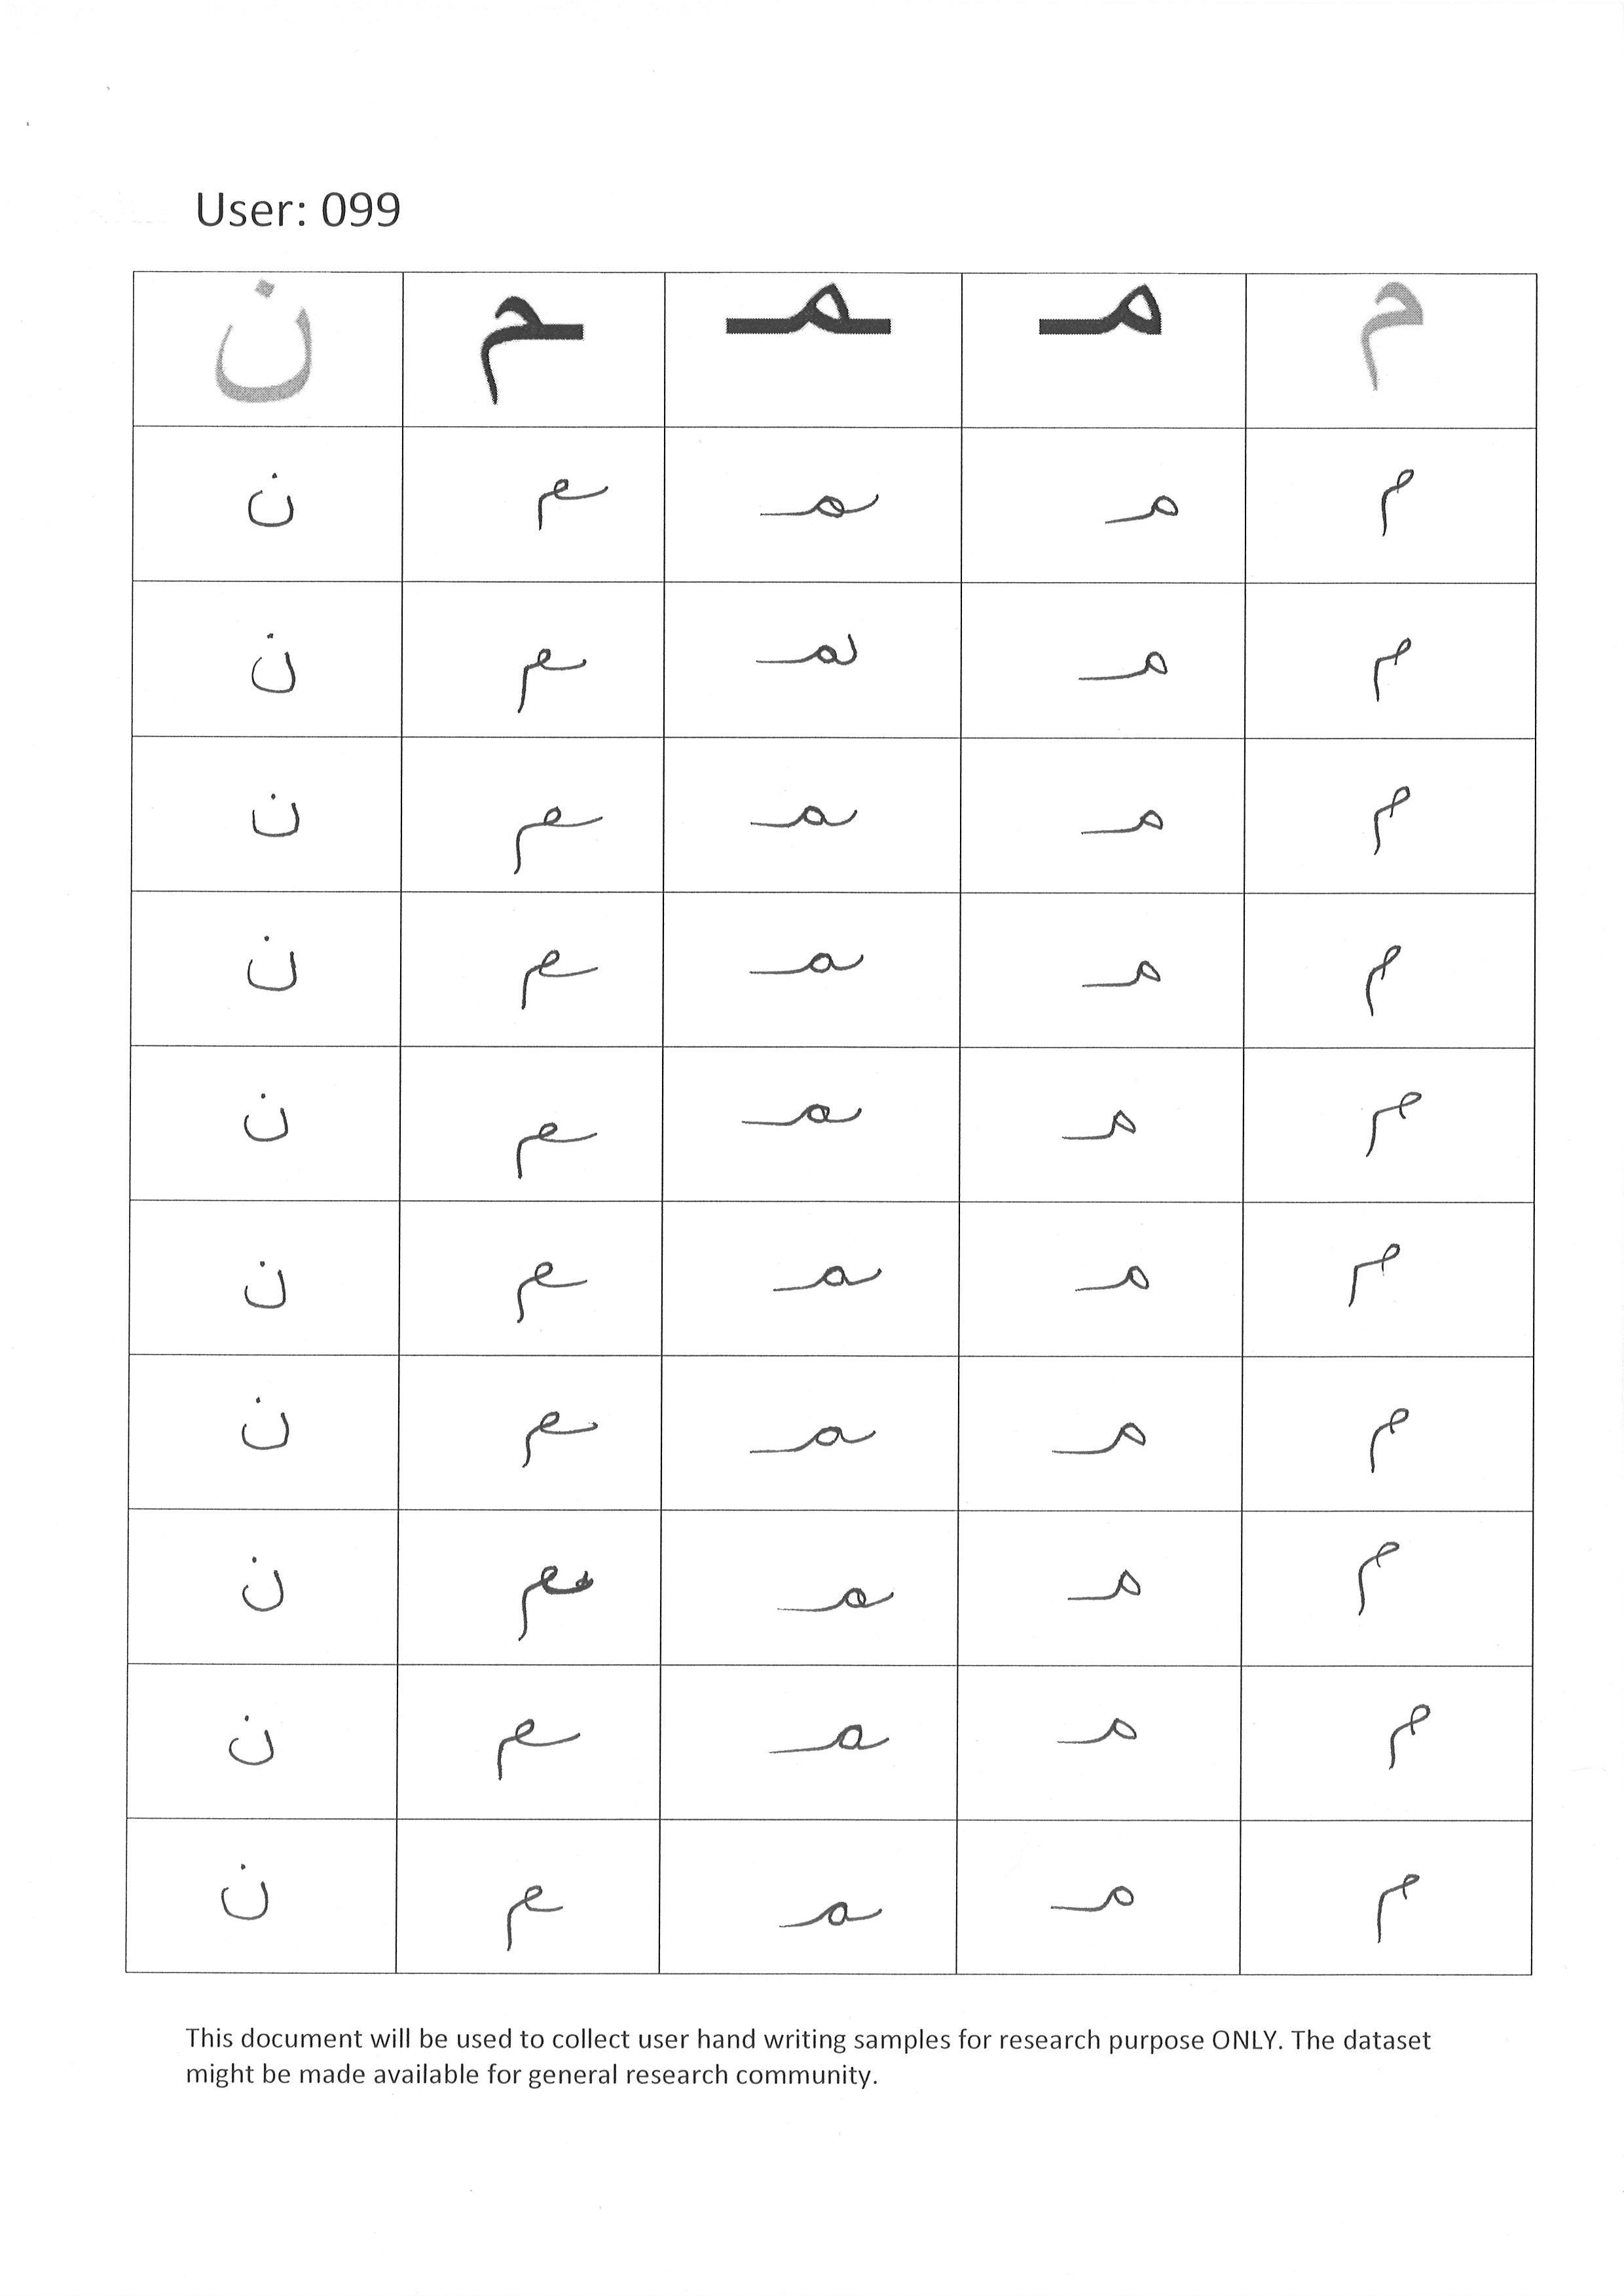 User: 099
م مـ ـمـ ـم ن
م مـ ـمـ ـم ن
م مـ ـمـ ـم ن
م مـ ـمـ ـم ن
م مـ ـمـ ـم ن
م مـ ـمـ ـم ن
م مـ ـمـ ـم ن
م مـ ـمـ ـم ن
م مـ ـمـ ـم ن
م مـ ـمـ ـم ن
م مـ ـمـ ـم ن
This document will be used to collect user hand writing samples for research purpose ONLY. The dataset
might be made available for general research community.